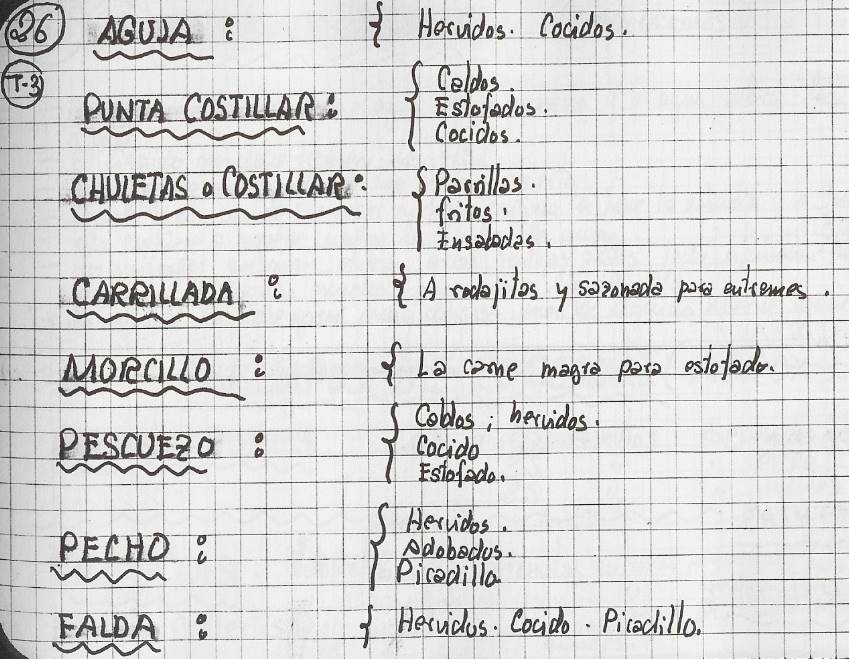 26 AGUJA : { Hervidos. Cocidos.
T-3
PUNTA COSTILLAR : { Caldos.
Estofados.
Cocidos.
CHULETAS o COSTILLAR : { Parrillas.
fritos.
Ensaladas.
CARRILLADA : { A rodajitas y sazonada para entremes.
MORCILLO : { La carne magra para estofado.
PESCUEZO : { Caldos ; hervidos.
Cocido
Estofado.
PECHO : { Hervidos.
Adobados.
Picadillo
FALDA : { Hervidos. Cocido. Picadillo.